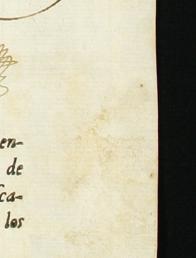 en-
de
ca-
los